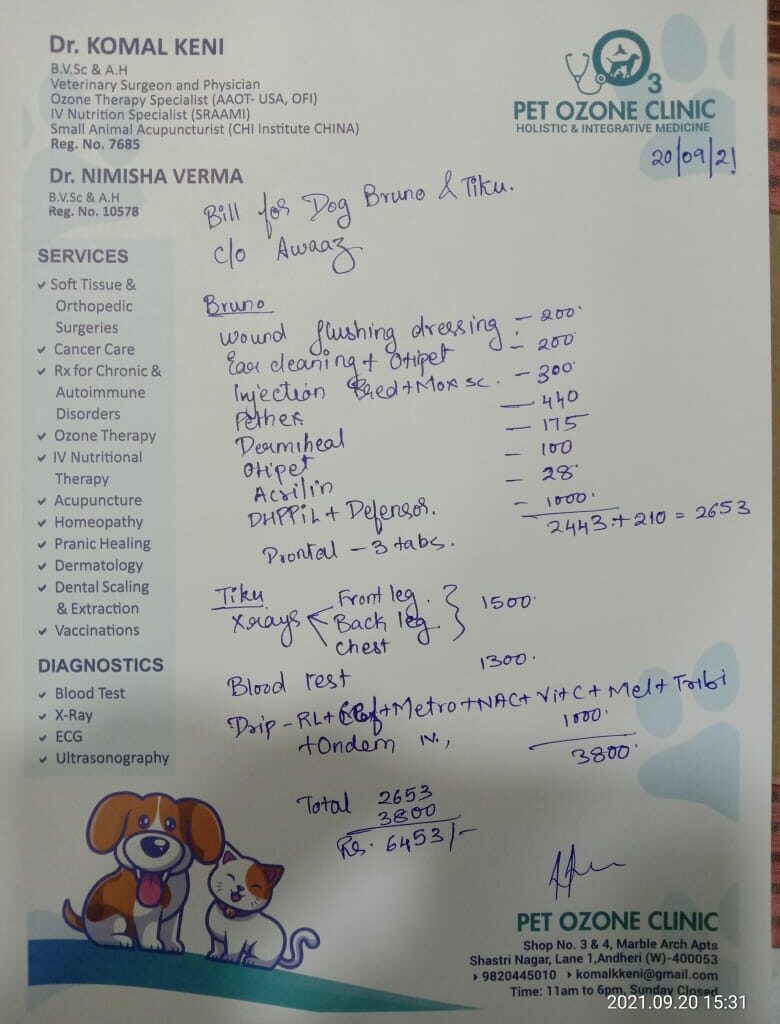 Dr. KOMAL KENI
B.V.Sc & A.H
Veterinary Surgeon and Physician
Ozone Therapy Specialist (AAOT- USA, OFI)
IV Nutrition Specialist (SRAAMI)
Small Animal Acupuncturist (CHI Institute CHINA)
Reg. No. 7685
3
PET OZONE CLINIC
HOLISTIC & INTEGRATIVE MEDICINE
20/09/21
Dr. NIMISHA VERMA
B.V.Sc & A.H
Reg. No. 10578
SERVICES
Soft Tissue &
Orthopedic
Surgeries
Cancer Care
Rx for Chronic &
Autoimmune
Disorders
Ozone Therapy
IV Nutritional
Therapy
Acupuncture
Homeopathy
Pranic Healing
Dermatology
Dental Scaling
& Extraction
Vaccinations
DIAGNOSTICS
Blood Test
X-Ray
ECG
Ultrasonography
Bill for Dog Bruno & Tiku.
c/o Awaaz
Bruno
Wound flushing dressing - 200.
Ear cleaning + Otipet - 200.
Injection + Mox sc. - 300.
Pethex - 440
Dermiheal - 175
Otipet - 100
Acrilin - 28.
DHPPiL + Defensor. - 1000.
2443 + 210 = 2653
Prontal - 3 tabs.
Tiku
Xrays Front leg. 1500.
Back leg
Chest
Blood test 1300.
Drip - RL + + Metro + NAC + Vit C + Mel + Tribi
+ Ondem IV., 1000.
3800.
Total 2653
3800
Rs. 6453/-
PET OZONE CLINIC
Shop No. 3 & 4, Marble Arch Apts
Shastri Nagar, Lane 1,Andheri (W)-400053
9820445010 komalkkeni@gmail.com
Time: 11am to 6pm, Sunday Closed
2021.09.20 15:31